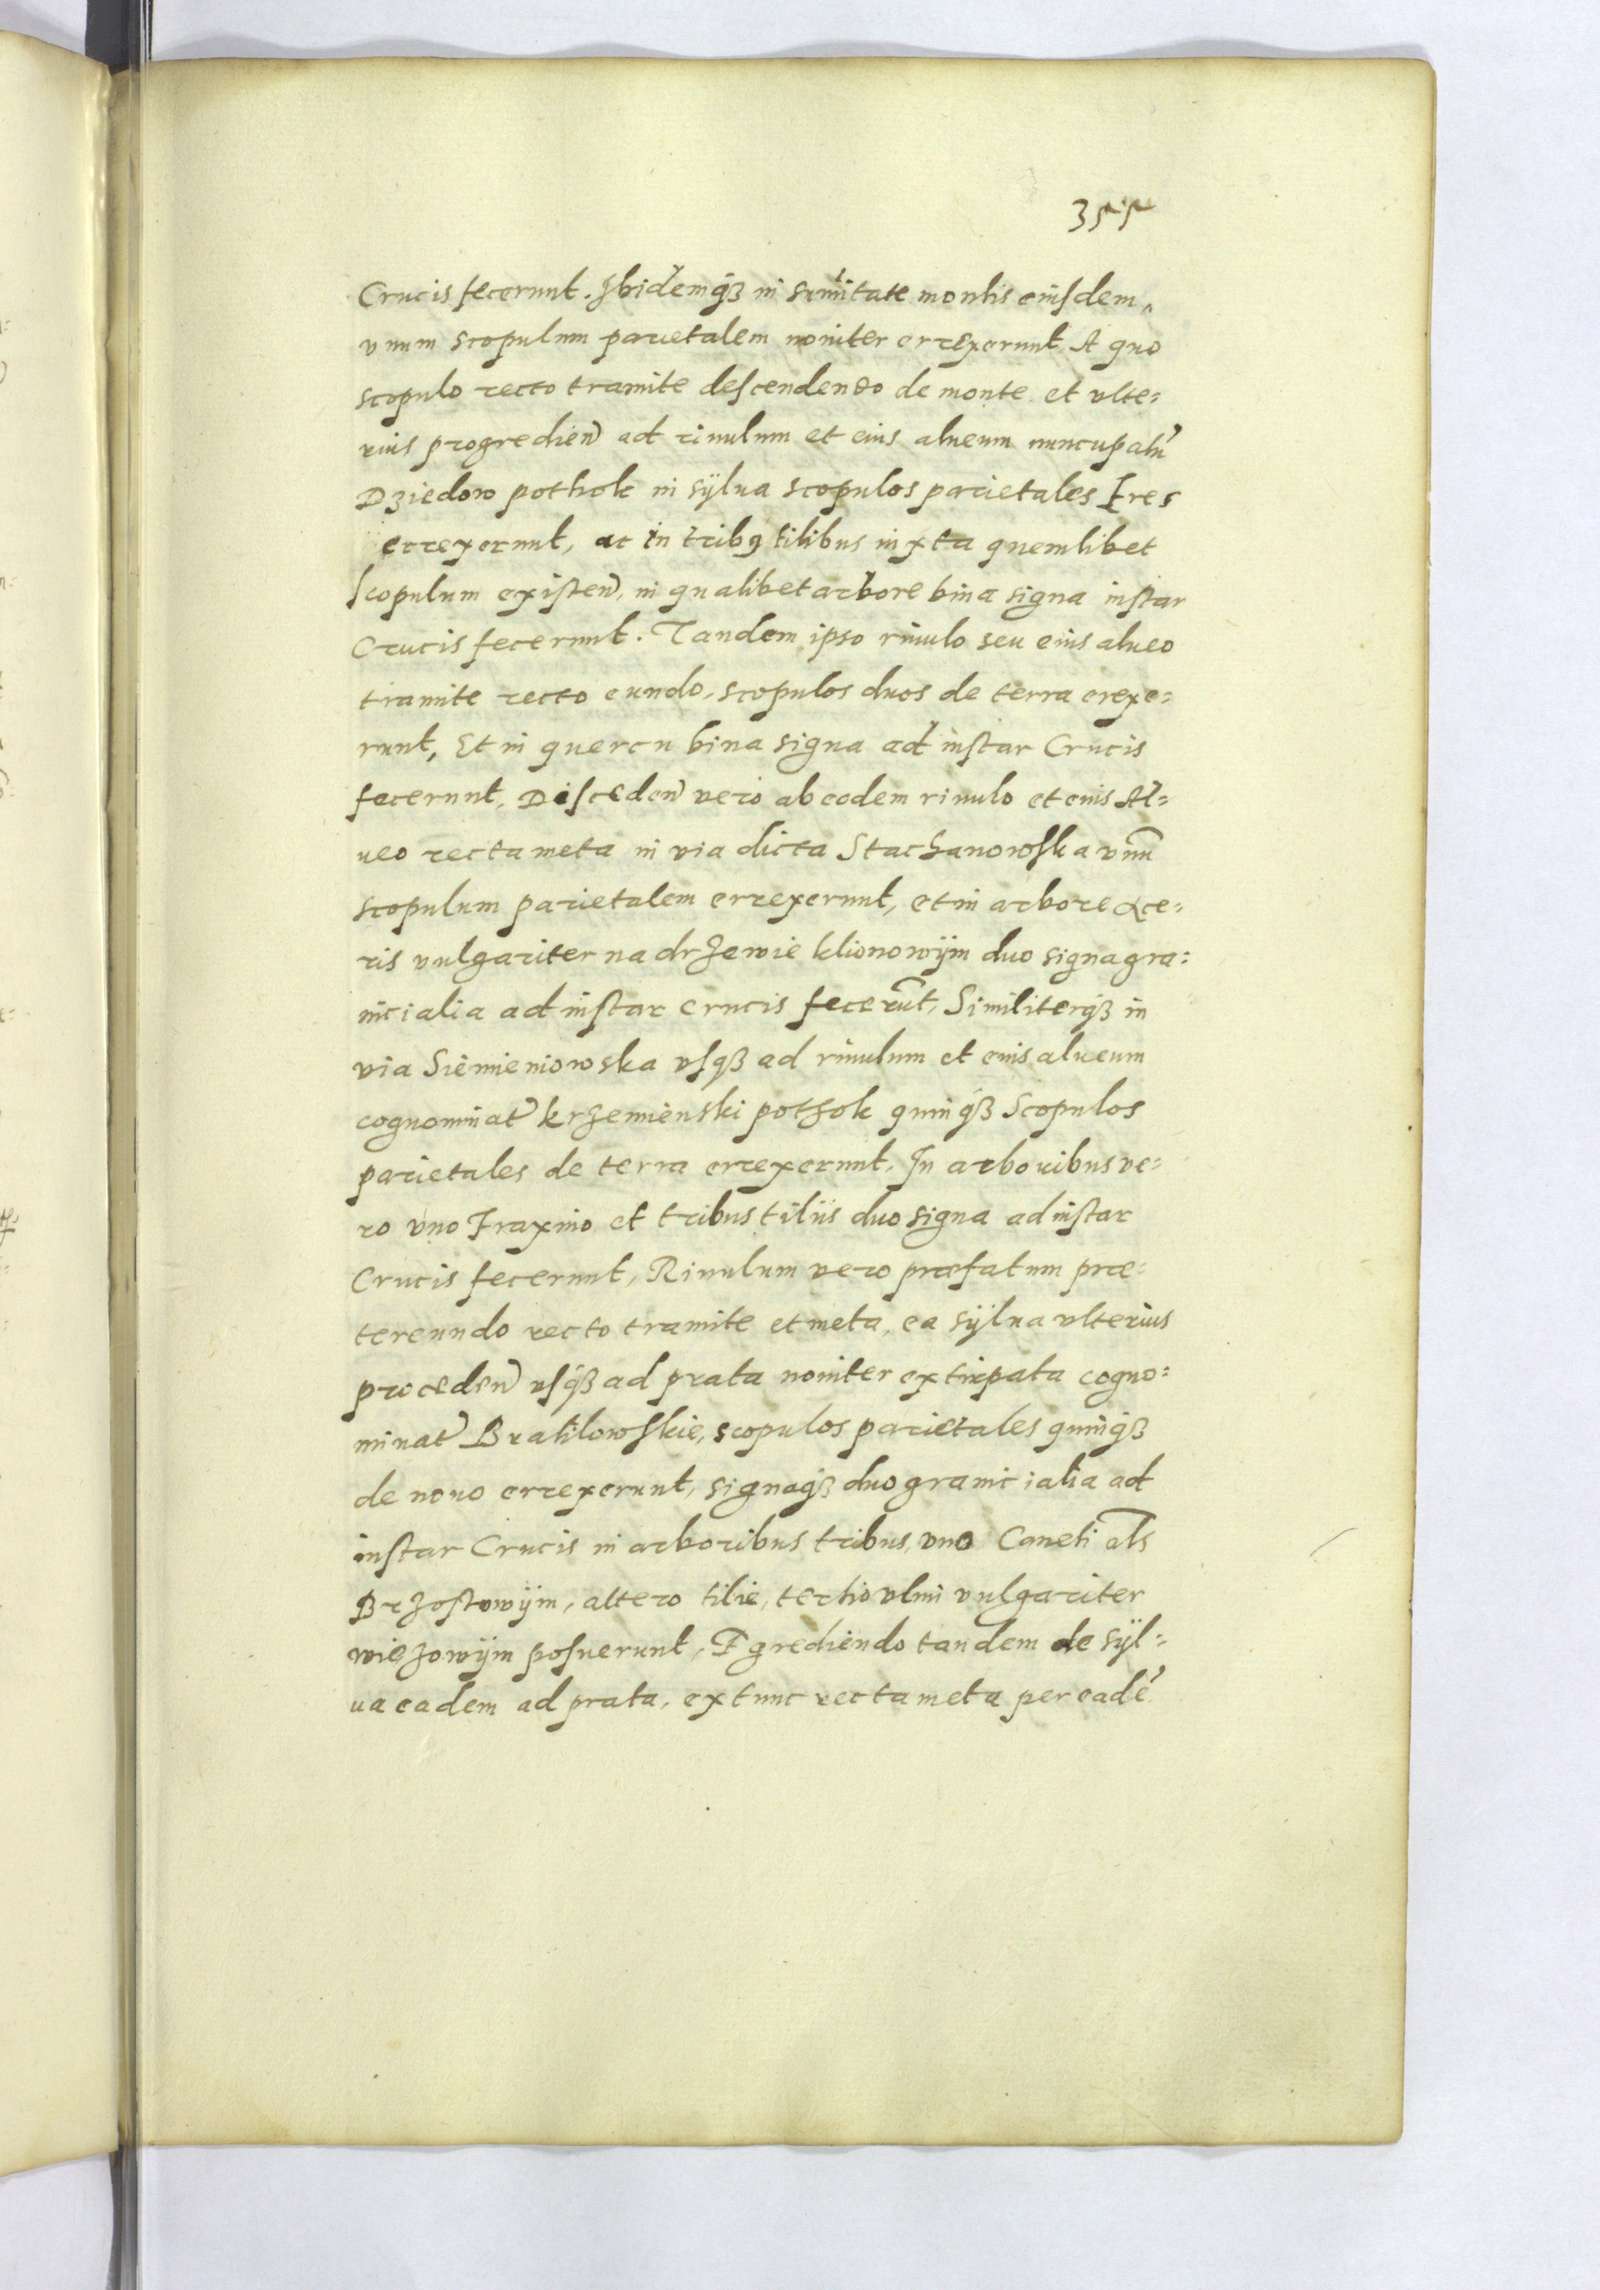 355
Crucis fecerunt. Ibidemqꝫ in sumitate montis eiusdem,
vnum scopulum parietalem nouiter errexerunt A quo
scopulo recto tramite descendendo de monte et vlte=
rius progredien̄ ad riuulum et eius alueum nuncupatū
Dziedow pothok in sÿlua scopulos parietales tres
errexerunt, ac in tribꝯ tilibus iuxta quemlibet
scopulum existen̄, in qualibet arbore bina signa instar
Crucis fecerunt. Tandem ipso riuulo seu eius alueo
tramite recto eundo, scopulos duos de terra erexe=
runt, Et in quercu bina signa ad instar Crucis
fecerunt, Disceden̄ vero ab eodem riuulo et eius Al=
ueo recta meta in via dicta Stachanowska vnū
scopulum parietalem errexerunt, et in arbore Ace=
ris vulgariter na drzewie klionowÿm duo signa gra=
nicialia ad instar crucis fecerūt, Similiterqꝫ in
via Siemieniowska vsqꝫ ad riuulum et eius alueum
cognominat̄ krzemienski pothok quinqꝫ Scopulos
parietales de terra errexerunt. In arboribus ve=
ro vno Fraxino et tribus tiliis duo signa ad instar
Crucis fecerunt, Riuulum vero præfatum præ=
tereundo recto tramite et meta, ea sÿlua vlterius
proceden̄ vsqꝫ ad prata nouiter extirpata cogno=
minat̄ Bratilowskie, scopulos parietales quinqꝫ
de nouo errexerunt, signaqꝫ duo granicialia ad
instar Crucis in arboribus tribus, vno Caneti als
Brzostowÿm, altero tilie, tertio vlmi vulgariter
wiezowÿm posuerunt, Egrediendo tandem de sÿl=
ua eadem ad prata, extunc recta meta per eadē